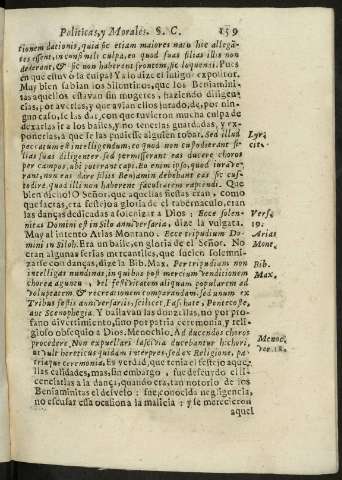 Politicas, y Morales. S. C. 159
tionem dationis, quia sic etiam maiores natu hic allega-
ti essent, in consimili culpa, eo quod suas filias illis non
dederant, & sic non haberent frontem, sic loquensi. Pues
en que estuvo la culpa? Ya lo dize el insigne expositor.
Muy bien sabian los Silontinos, que los Benjamini-
tas aquellos estavan sin mugeres, haziendo diligen-
cias, por averlas, y que avian ellos jurado, de, por nin-
gun caso, se las dar, con que tuvieron mucha culpa de
dexarlas ir a los bailes, y no tenerlas guardadas, y ex-
ponerlas, a que se las pudiesse alguien robar. Sed illud
peccatum est intelligendum, eo quod non custodierant fi-
lias suas diligenter sed permisserant eas ducere choros
per campos, ubi poterant capi. Eo enim ipso, quod iurave-
rant, non eas dare filiis Benjamin debebant eas sic cus-
todire quod illi non haberent facultatem rapiendi. Que
bien dicho! O Señor, que aquellas fiestas eran, como
que sacras, era festejo a gloria del tabernaculo, eran
las danças dedicadas a solenizar a Dios: Ecce solem-
nitas Domini est in Silo anniversaria, dize la vulgata.
Muy al intento Arias Montano. Ecce tripudium Do-
mini in Siloh. Era un baile, en gloria de el Señor. No
eran algunas ferias mercantiles, que suelen solemni-
zarse con danças, dize la Bib. Max. Per tripudium non
intelligas nundinas, in quibus post mercium venditionem
chorea aguntu, vel festivitatem aliquam popularem ad
voluptatem & recreationem comparandam sed unum ex
Tribus festis anniversariis, scilicet, Fas hate, Pentecoste,
ave Scenophegia. Y bailavan las donzellas, no por pro-
fano divertimiento, sino por patria ceremonia y reli-
gioso obsequio a Dios. Menochio. Ad ducendos choros
procedere, Non expuellari lascivia ducebantur hi chori,
ut vult hereticus quidam interpres, sed ex Religione, pa-
triaque ceremonia. Es verdad, que tenia el festejo aque-
llas calidades, mas, sin embargo, fue descuydo el li-
cenciarlas a la dança, quando era, tan notorio de los
Benjaminitas el desvelo: fue, conocida negligencia,
no escusar essa ocasion a la malicia: y se merecieron
aquel
Lyr.
cit.
Vers.
19.
Arias
Mont.
Bib.
Max.
Menoc.
ver. 12.